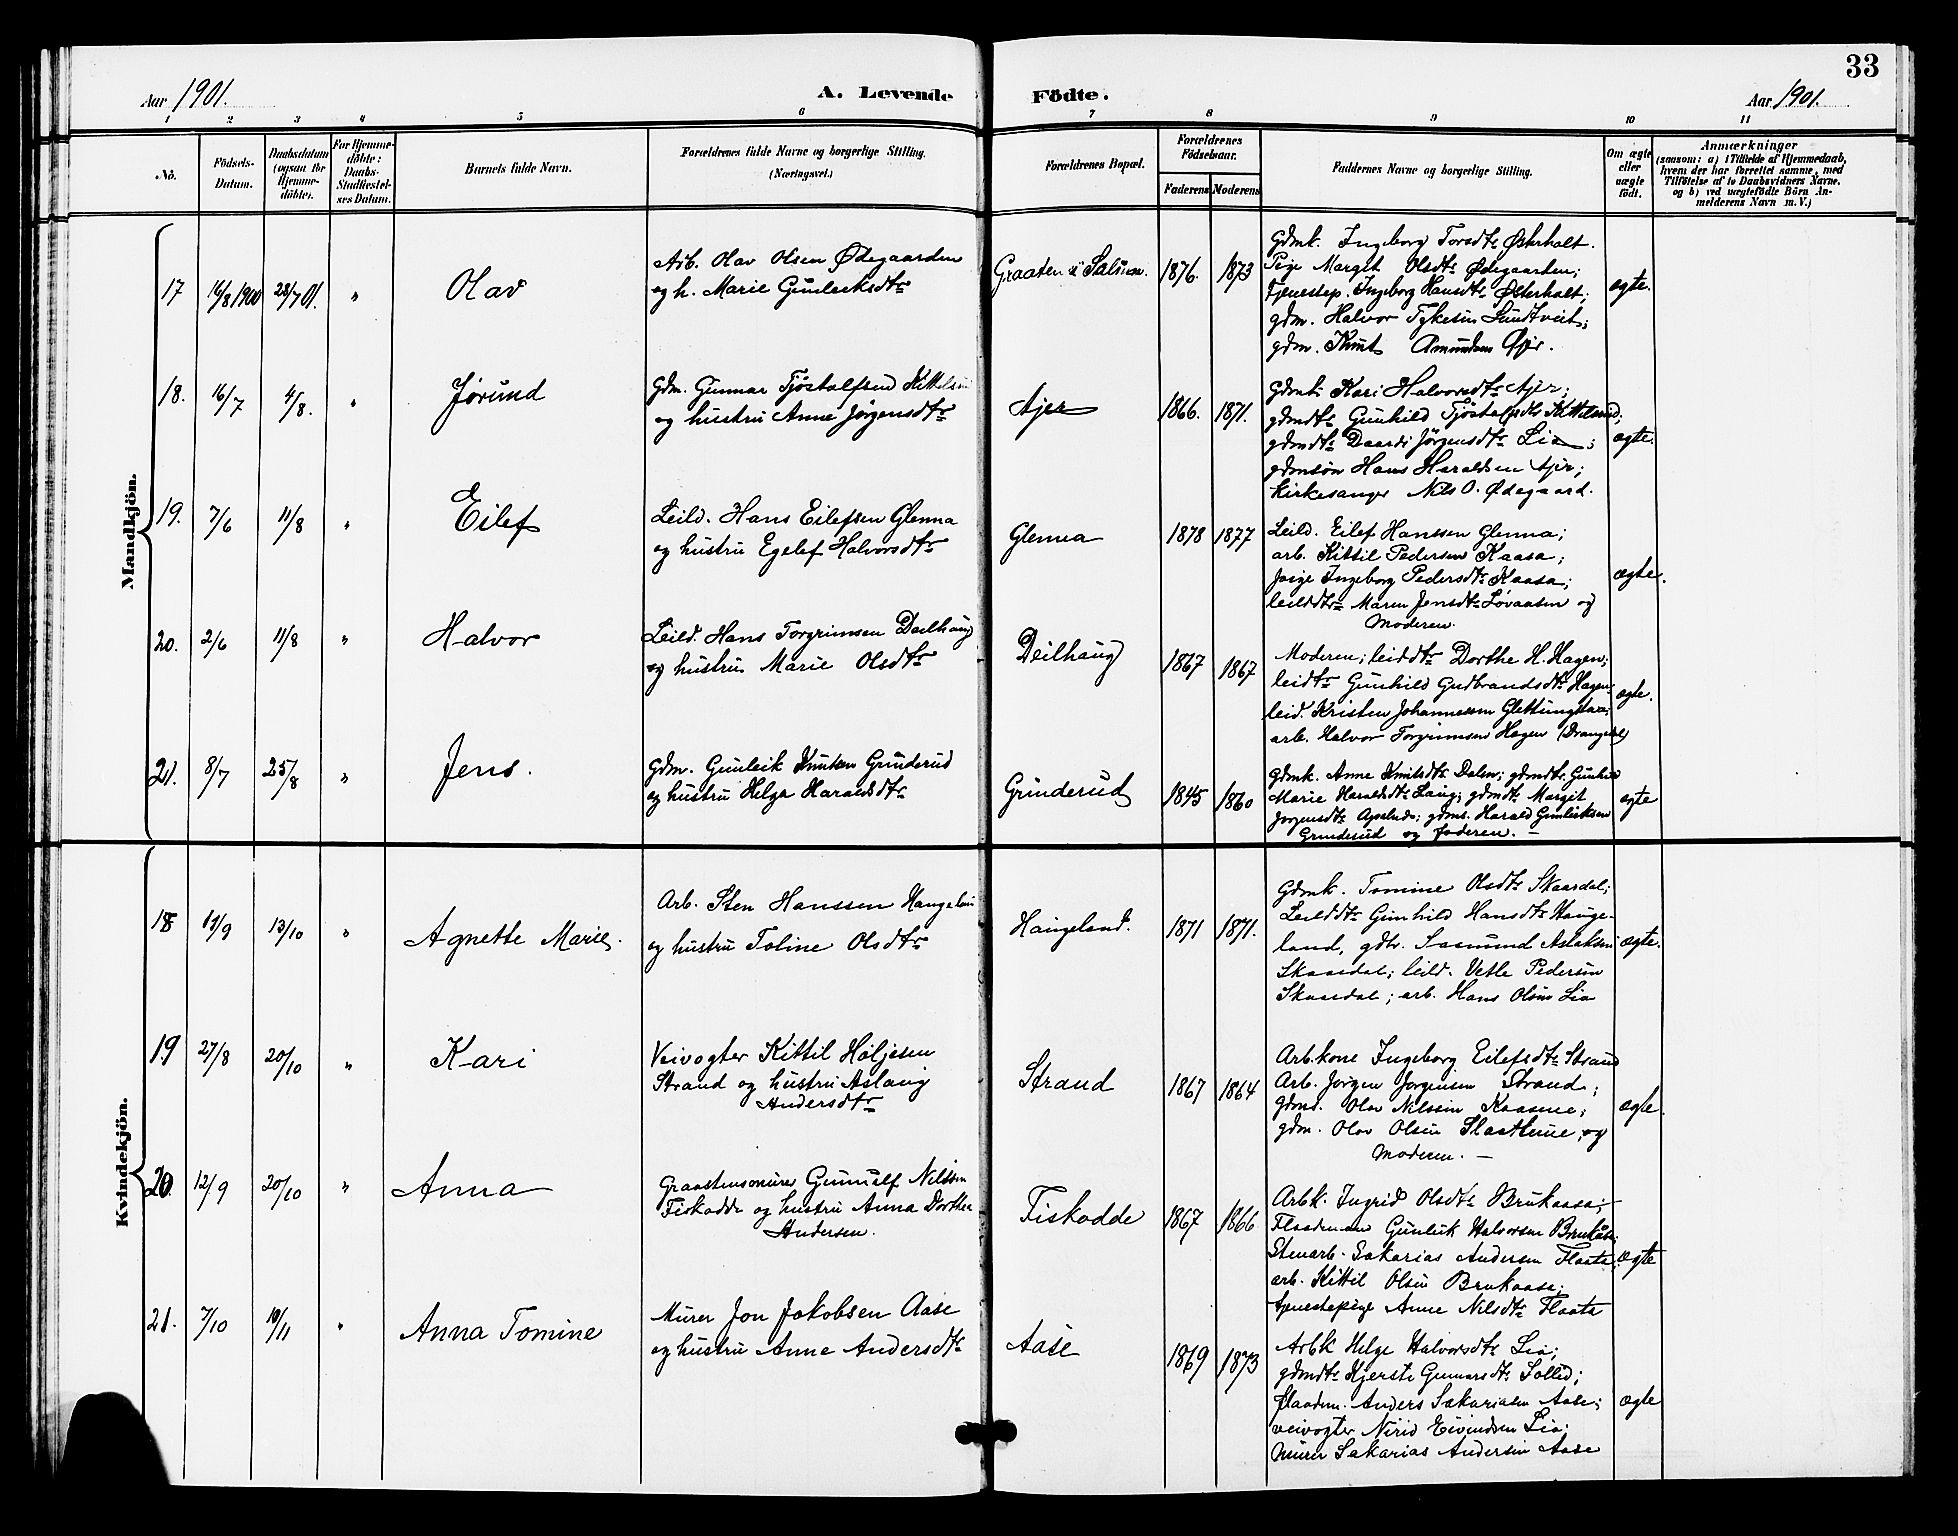 33
Aar 1901.
A. Levende Födte.
Aar 1901.
1 2 3 4 5 6 7 8 9 10 11
No.
Födsels-
Datum.
Daabsdatum
(ogsaa for
Hjemme-
döbte).
For Hjemme-
döbte:
Daabs-
Stadfæstel-
ses Datum.
Barnets fulde Navn.
Forældrenes fulde Navne og borgerlige Stilling.
(Næringsvei.)
Forældrenes Bopæl.
Forældrenes
Födselsaar.
Faderens Moderens
Faddernes Navne og borgerlige Stilling.
Om ægte
eller
uægte
födt.
Anmærkninger
(saasom: a) i Tilfælde af Hjemmedaab,
hvem der har forrettet samme, med
Tilföielse af to Daabsvidners Navne,
og b) ved uægtefödte Börn An-
melderens Navn m. V.)
Mandkjön.
17 16/8 1900 28/7 01. " Olav
Arb. Olav Olsen Ødegaarden
og h. Marie Gunleiksdtr
1876. 1873
Gdmk. Ingeborg Torsdtr Østerholt.
Pige Margit Olsdtr Ødegaarden;
Tjenestep. Ingeborg Hansdtr Østerholt;
gdm. Halvor Tykesen Lundtveit;
gdm. Knut Amundsen
ægte.
18. 16/7 4/8. " Jørund
Gdm. Gunnar Tjøstolfsen
og hustru Anne Jørgensdtr
Ajer 1866. 1871.
Gdmk. Kari Halvorsdtr Ajer;
gdmdtr Gunhild
gdmdtr Jörgensdtr Lia;
gdmsøn Hans Haraldsen Ajer;
kirkesanger Nils O. Ødegaard.
ægte.
19. 7/6 11/8 " Eilef
Leild. Hans Eilefsen Glenna
og hustru Egelef Halvorsdtr
Glenna 1878 1877
Leild. Eilef Hanssen Glenna;
arb. Kittil Pedersen Kaasa;
pige Ingeborg Pedersdtr Kaasa;
leilddtr Maren Jensdtr Løvaasen og
Moderen.
ægte.
20. 2/6 11/8 " Halvor
Leild. Hans Torgrimsen Deilhaug
og hustru Marie Olsdtr
Deilhaug 1867 1867
Moderen; leiddtr Dorthe H. Hagen;
leidtr Gunhild Gudbrandsdtr Hagen;
leid. Kristen Johannessen
arb. Halvor Torgrimsen Hagen (Drangedal)
ægte.
21. 8/7 25/8 " Jens.
Gdm. Gunleik Knutsen Grinderud
og hustru Helga Haraldsdtr
Grinderud 1845 1860
Gdmk. Anne Knutsdtr Dalen; gdmdtr. Gunhild
Marie Haraldsdtr gdmdtr Margit
Jørgensdtr gdms. Harald Gunleiksen
Grinderud og faderen. —
ægte
Kvindekjön.
18 11/9 13/10 " Agnette Marie.
Arb. Sten Hanssen Haugeland
og hustru Toline Olsdtr
Haugeland. 1871 1871.
Gdmk. Tomine Olsdtr Skaardal;
Leilddtr Gunhild Hansdtr Hauge-
land, Aslaksen
Skaardal; leild. Vetle Pedersen
Skaardal; arb. Hans Olsen Lia
ægte.
19 27/8 20/10 " Kari
Veivogter Kittil Høljesen
Strand og hustru Aslaug
Andersdtr
Strand 1867 1864
Arb.kone Ingeborg Eilefsdtr Strand
Arb. Jørgen Jørgensen Strand;
gdms. Olav Nilssen Kaasene;
gdm. Olav Olsen og
Moderen. —
ægte.
20. 12/9 20/10 " Anna
Graastensmurer Gunnulf Nilssen
Fiskodde og hustru Anna Dorthea
Andersen.
Fiskodde 1867 1866
Arbk. Ingrid Olsdtr Brukaasa;
Flaadmand Gunleik Halvorsen Brukåsa;
Stenarb. Sakarias Andersen Flaata;
arb. Kittil Olsen Brukaasa;
tjenestepige Anne Nilsdtr Flaata
ægte
21. 7/10 10/11 " Anna Tomine
Murer Jon Jakobsen Aase
og hustru Anne Andersdtr
Aase 1869 1873
Arbk Helge Halvorsdtr Lia;
gdmdtr Kjersti Gunnarsdtr Sollid;
flaadm. Anders Sakariasen Aase;
veivogter Nirid Eivindsen Lia;
murer Sakarias Andersen Aase
ægte